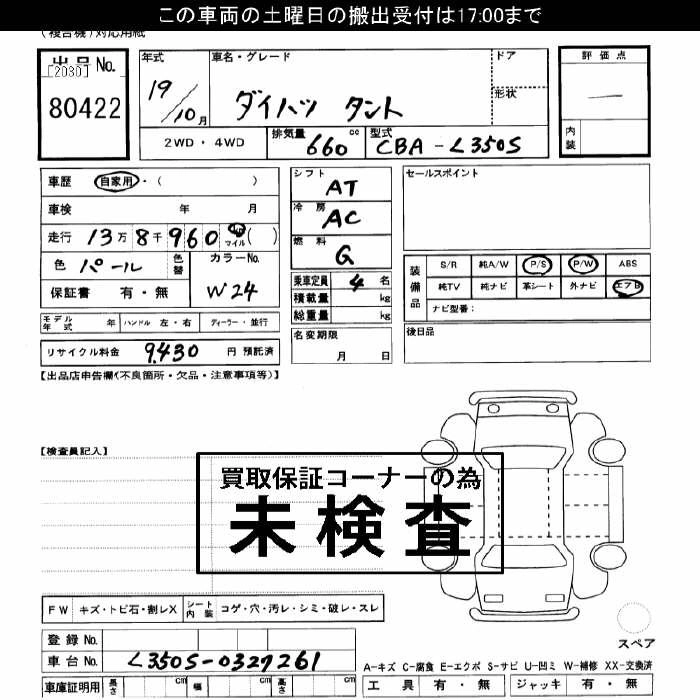 この車両の土曜日の搬出受付は17:00まで
(複合機)対応用紙
出品No. 年式 車名・グレード ドア 評価点
[2030]
80422 19/10月 ダイハツ タント 形状 —
2WD・4WD 排気量 660 cc 型式 CBA-L350S 内装
車歴 自家用・( ) シフト AT セールスポイント
車検 年 月 冷房 AC
走行 13万8千960 km マイル ( ) 燃料 G
色 パール 色替 カラーNo. W24 乗車定員 4名 装備品 S/R 純A/W P/S P/W ABS
保証書 有・無 積載量 kg 純TV 純ナビ 革シート 外ナビ エアB
総重量 kg ナビ型番:
モデル年式 年 ハンドル 左・右 ディーラー・並行 名変期限 月 日 後日品
リサイクル料金 9,430 円 預託済
【出品店申告欄(不良箇所・欠品・注意事項等)】
【検査員記入】
買取保証コーナーの為
未検査
FW キズ・トビ石・割レX シート内装 コゲ・穴・汚レ・シミ・破レ・スレ
登録No.
スペア
車台No. L350S-0327261
A-キズ C-腐食 E-エクボ S-サビ U-凹ミ W-補修 XX-交換済
車庫証明用 長さ cm 幅 cm 高さ cm 工具 有・無 ジャッキ 有・無